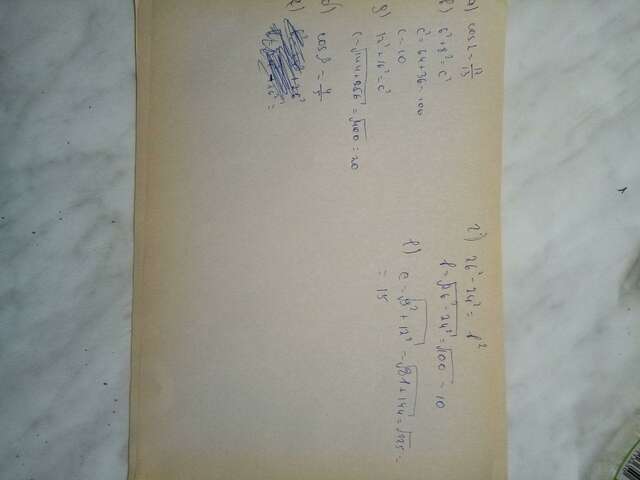 а) cos α = 12/13
в) 6² + 8² = c²
c² = 64 + 36 = 100
c = 10
д) 12² + 16² = c²
c = √144 + 256 = √400 = 20
б) cos β = 4/5
г) 26² - 24² = b²
b = √26² - 24² = √100 = 10
е) c = √9² + 12² = √81 + 144 = √225 =
= 15